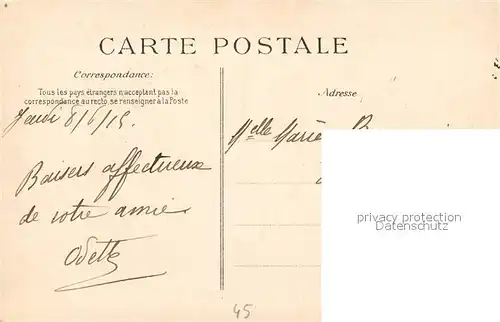 CARTE POSTALE
Correspondance:
Tous les pays étrangers n'acceptent pas la
correspondance au recto, se renseigner à la Poste
Adresse
Jeudi 8/6/15.
Melle Marie
Baisers affectueux
de votre amie
Odette
45
privacy protection
Datenschutz